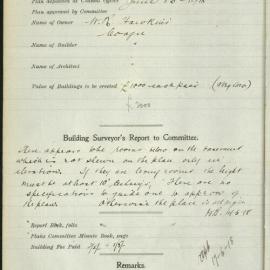 Plan deposited at Council Offices June 13 - 1918
Plan approved by Committee
Name of Owner W. R. Hawkins
Coogee
Name of Builder
Name of Architect
Value of Buildings to be erected £1000 each pair
Building Surveyor's Report to Committee.
There appears to be rooms also on the basement
which is not shewn on the plan only in
elevations. If they are living rooms the height
must be at least 10' ceilings. There are no
specifications to guide one to approve of
the plans. Otherwise the place is all right
H.B. 14 6 18
Report Book, folio
Plans Committee Minute Book, page
Building Fee Paid
17-6-18
Remarks.